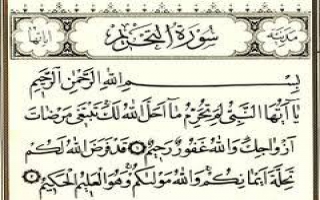 مدنية سورة التحريم اياتها
بِسْمِ اللهِ الرَّحْمٰنِ الرَّحِيْمِ
يَا أَيُّهَا النَّبِيُّ لِمَ تُحَرِّمُ مَا أَحَلَّ اللهُ لَكَ تَبْتَغِي مَرْضَاتَ
أَزْوَاجِكَ وَاللهُ غَفُورٌ رَحِيمٌ ۝ قَدْ فَرَضَ اللهُ لَكُمْ
تَحِلَّةَ أَيْمَانِكُمْ وَاللهُ مَوْلٰىكُمْ وَهُوَ الْعَلِيمُ الْحَكِيمُ ۝